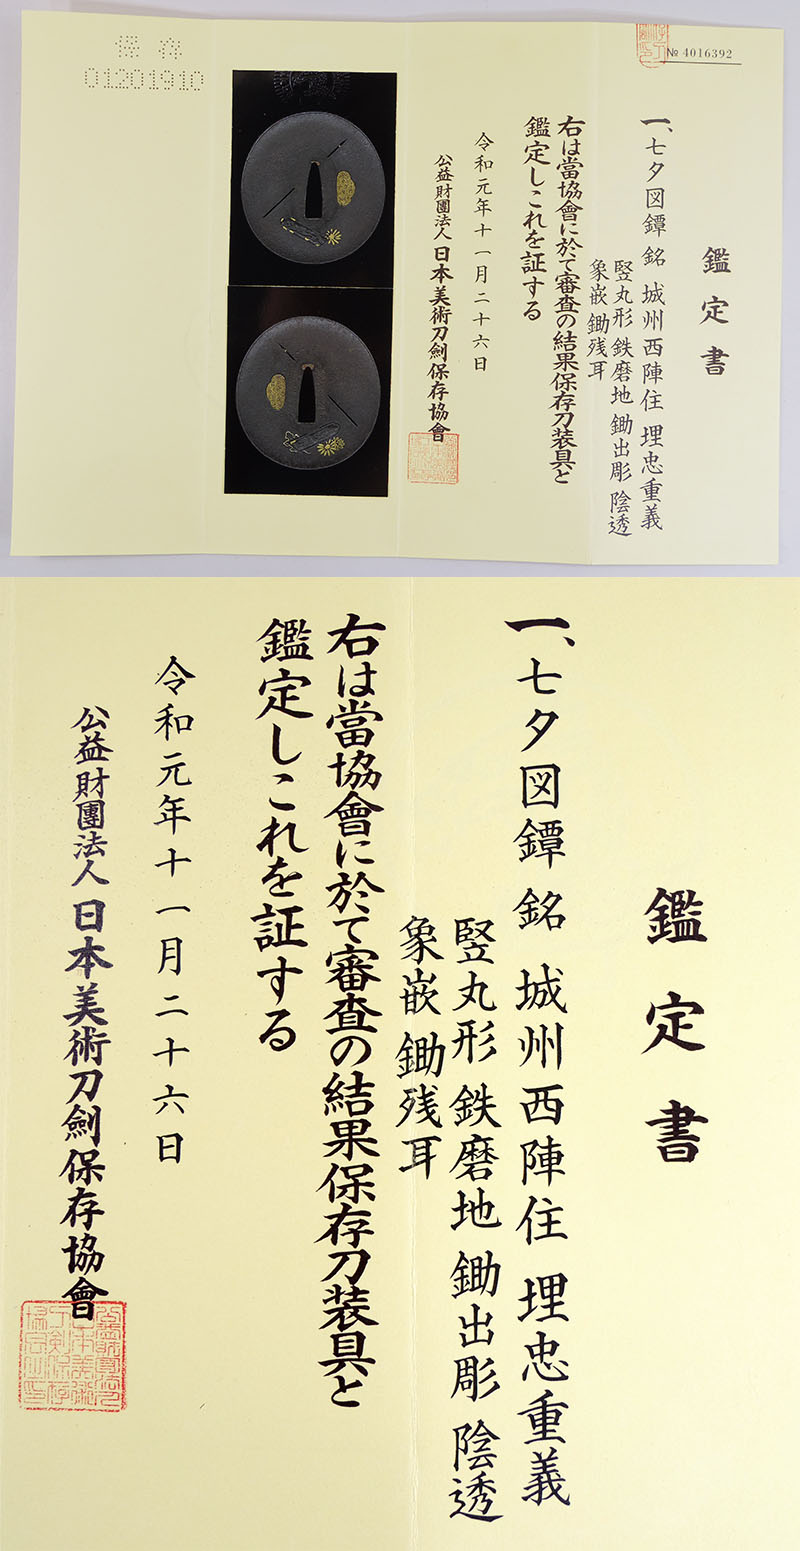 保存
01201910
№ 4016392
鑑定書
一、七夕図鐔 銘 城州西陣住 埋忠重義
竪丸形 鉄磨地 鋤出彫 陰透
象嵌 鋤残耳
右は當協會に於て審査の結果保存刀装具と
鑑定しこれを証する
令和元年十一月二十六日
公益財團法人 日本美術刀劍保存協會
鑑定書
一、七夕図鐔 銘 城州西陣住 埋忠重義
竪丸形 鉄磨地 鋤出彫 陰透
象嵌 鋤残耳
右は當協會に於て審査の結果保存刀装具と
鑑定しこれを証する
令和元年十一月二十六日
公益財團法人 日本美術刀劍保存協會